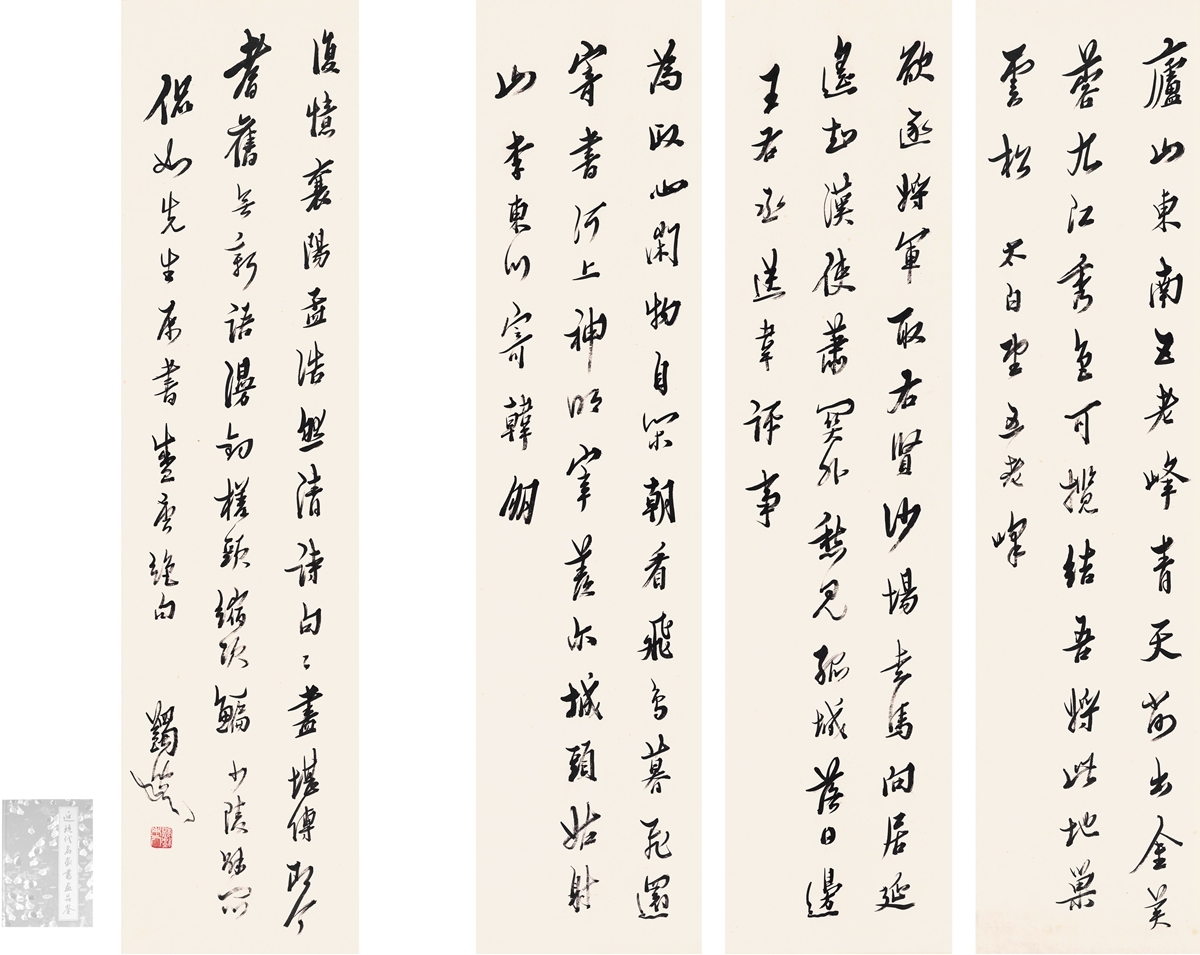 廬山東南五老峰青天削出金芙
蓉九江秀色可攬結吾將此地巢
雲松 太白望五老峰
欲逐將軍取右賢沙場走馬向居延
遙知漢使蕭關外愁見孤城落日邊
王右丞送韋評事
為政心閑物自閑朝看飛鳥暮飛還
寄書河上神明宰羨爾城頭姑射
山 李東川寄韓鵬
復憶襄陽孟浩然清詩句々盡堪傳即今
耆舊無新語漫釣槎頭縮項鯿 少陵
侃如先生屬書 唐絕句
蠲叟